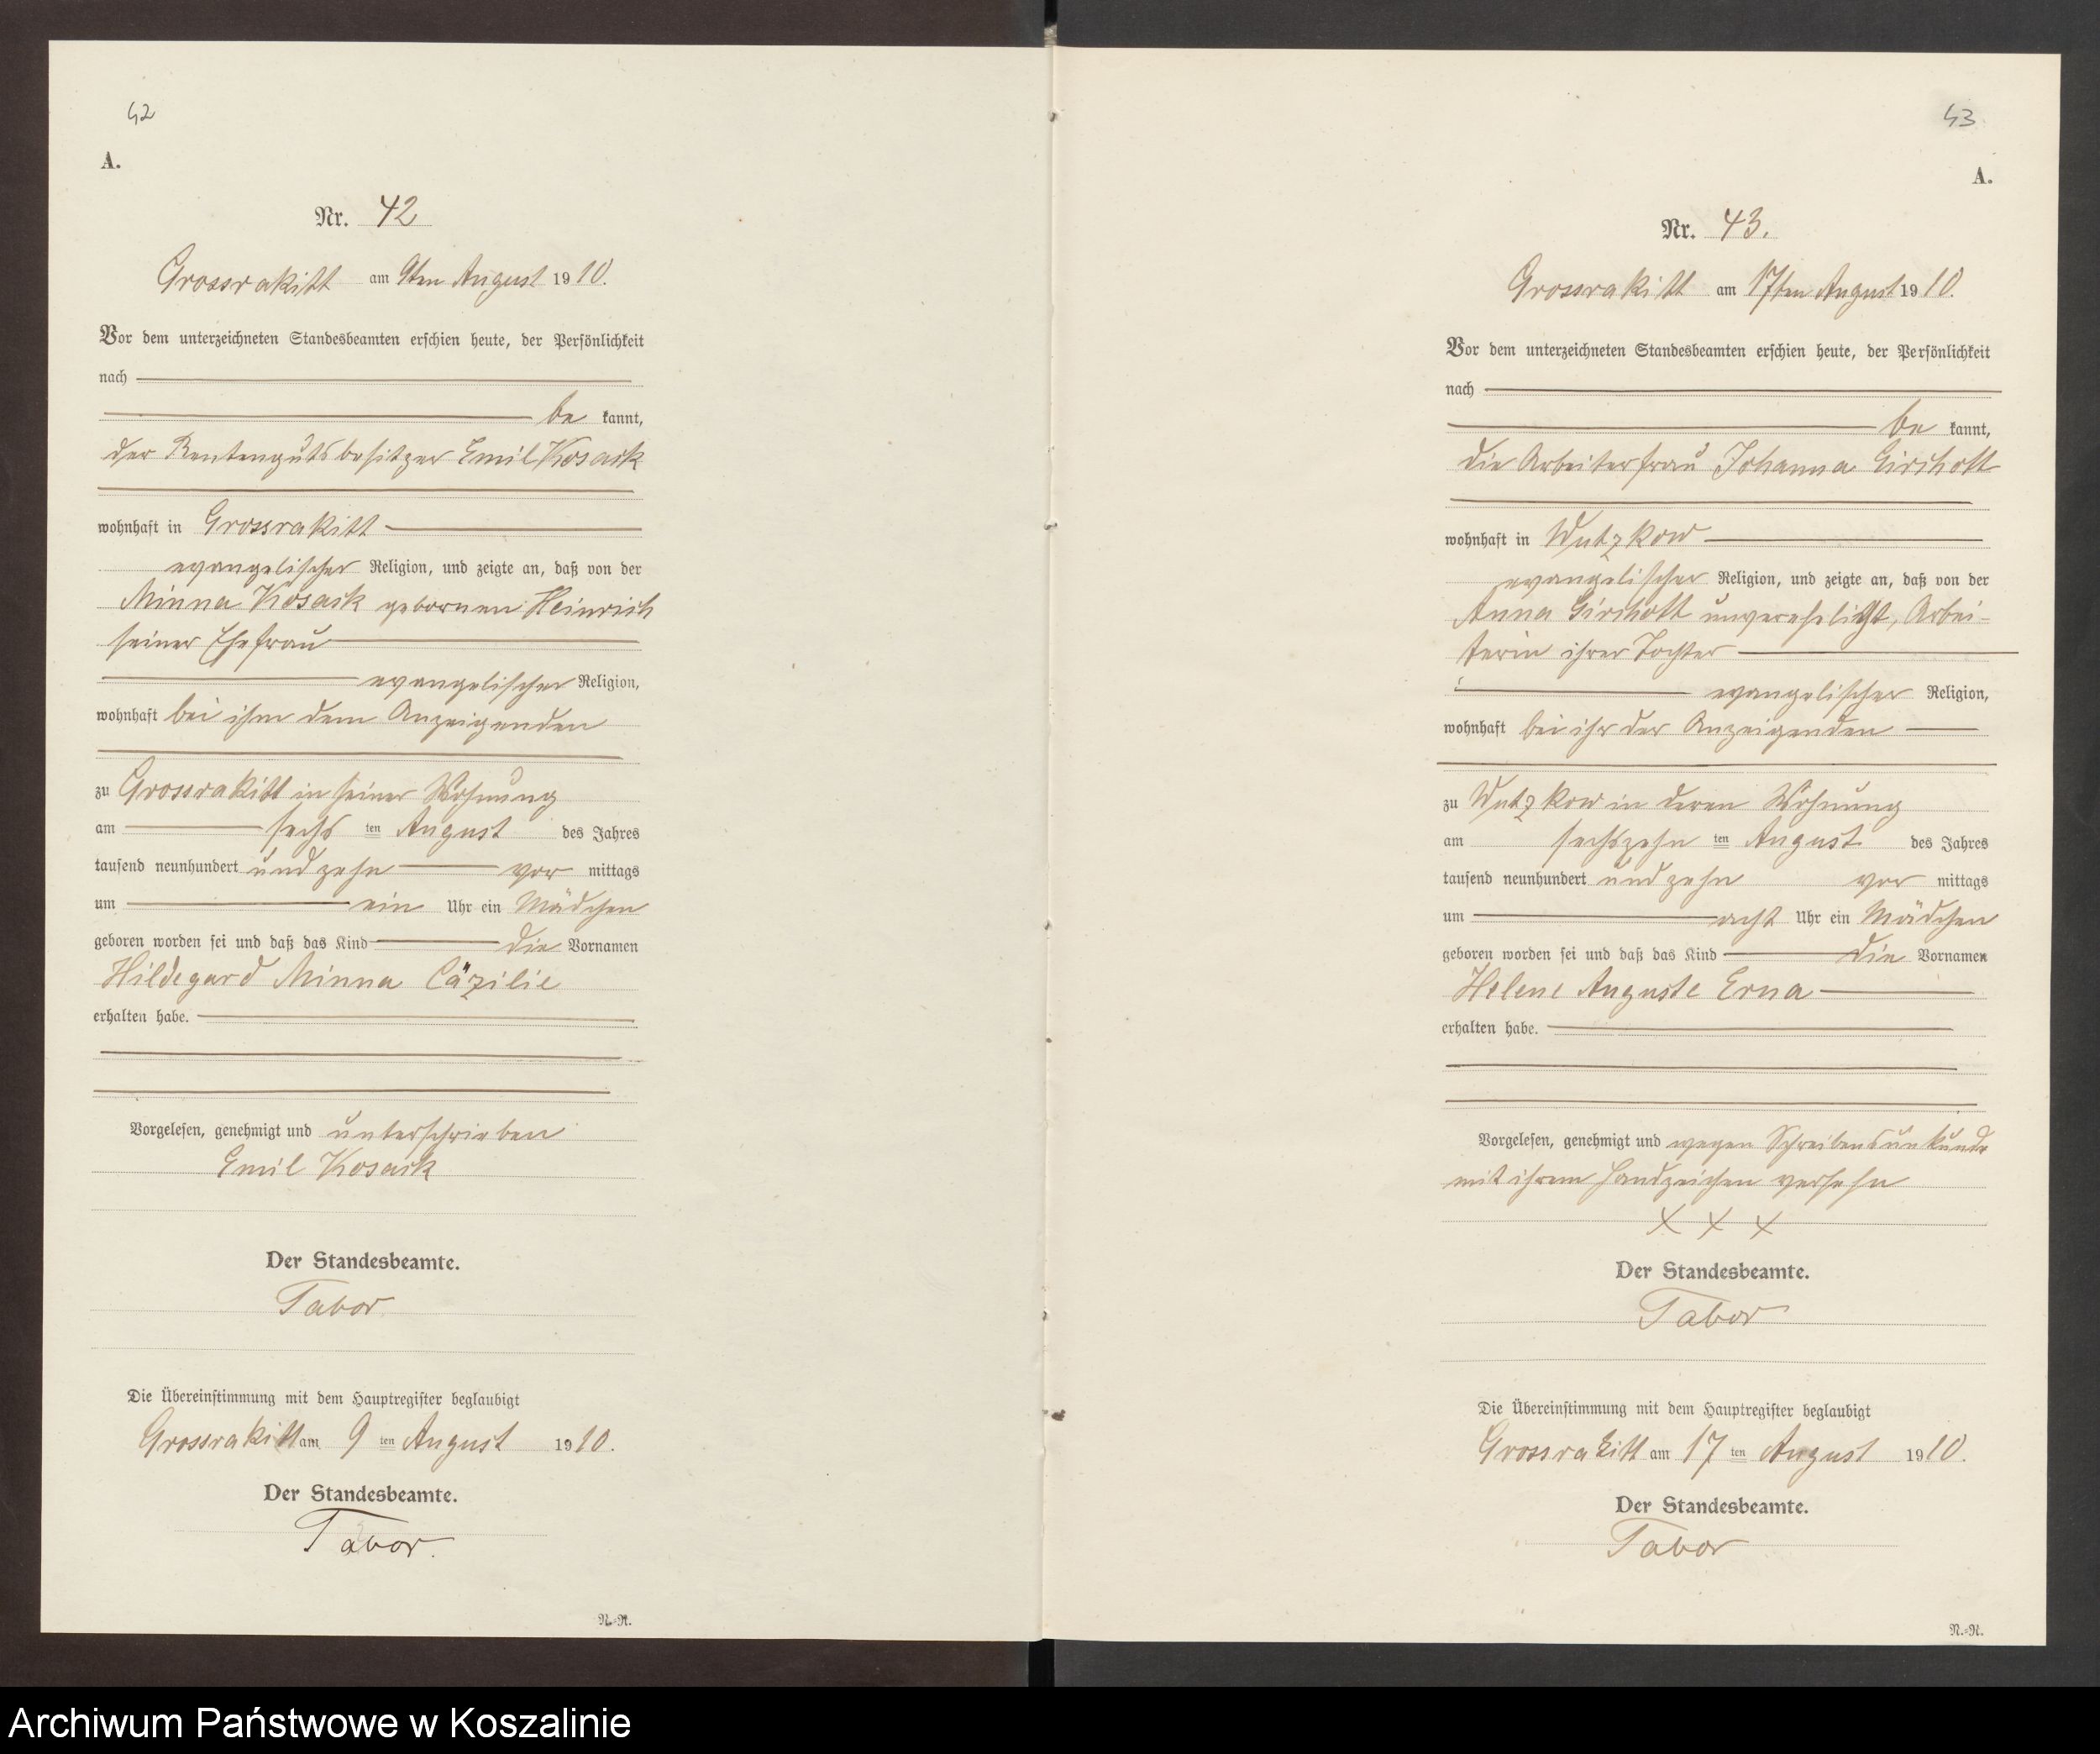 42
A.
Nr. 42
Grossrakitt am 9ten August 1910.
Vor dem unterzeichneten Standesbeamten erschien heute, der Persönlichkeit
nach
be kannt,
der Rentengutsbesitzer Emil Kosack
wohnhaft in Grossrakitt
evangelischer Religion, und zeigte an, daß von der
Minna Kosack gebornen Heinrich
seiner Ehefrau
evangelischer Religion,
wohnhaft bei ihm dem Anzeigenden
zu Grossrakitt in seiner Wohnung
am sechs ten August des Jahres
tausend neunhundert und zehn vor mittags
um ein Uhr ein Mädchen
geboren worden sei und daß das Kind die Vornamen
Hildegard Minna Cäzilie
erhalten habe.
Vorgelesen, genehmigt und unterschrieben
Emil Kosack
Der Standesbeamte.
Tabor
Die Übereinstimmung mit dem Hauptregister beglaubigt
Grossrakitt am 9 ten August 1910.
Der Standesbeamte.
Tabor.
N.=R.
43
A.
Nr. 43.
Grossrakitt am 17ten August 1910.
Vor dem unterzeichneten Standesbeamten erschien heute, der Persönlichkeit
nach
be kannt,
die Arbeiterfrau Johanna
wohnhaft in Wutzkow
evangelischer Religion, und zeigte an, daß von der
Anna unverehelicht, Arbei-
terin ihrer Tochter
evangelischer Religion,
wohnhaft bei ihr der Anzeigenden
zu Wutzkow in deren Wohnung
am sechszehn ten August des Jahres
tausend neunhundert und zehn vor mittags
um acht Uhr ein Mädchen
geboren worden sei und daß das Kind die Vornamen
Helene Auguste Erna
erhalten habe.
Vorgelesen, genehmigt und wegen Schreibensunkunde
mit ihrem Handzeichen versehn
X X X
Der Standesbeamte.
Tabor
Die Übereinstimmung mit dem Hauptregister beglaubigt
Grossrakitt am 17 ten August 1910.
Der Standesbeamte.
Tabor
N.=R.
Archiwum Państwowe w Koszalinie